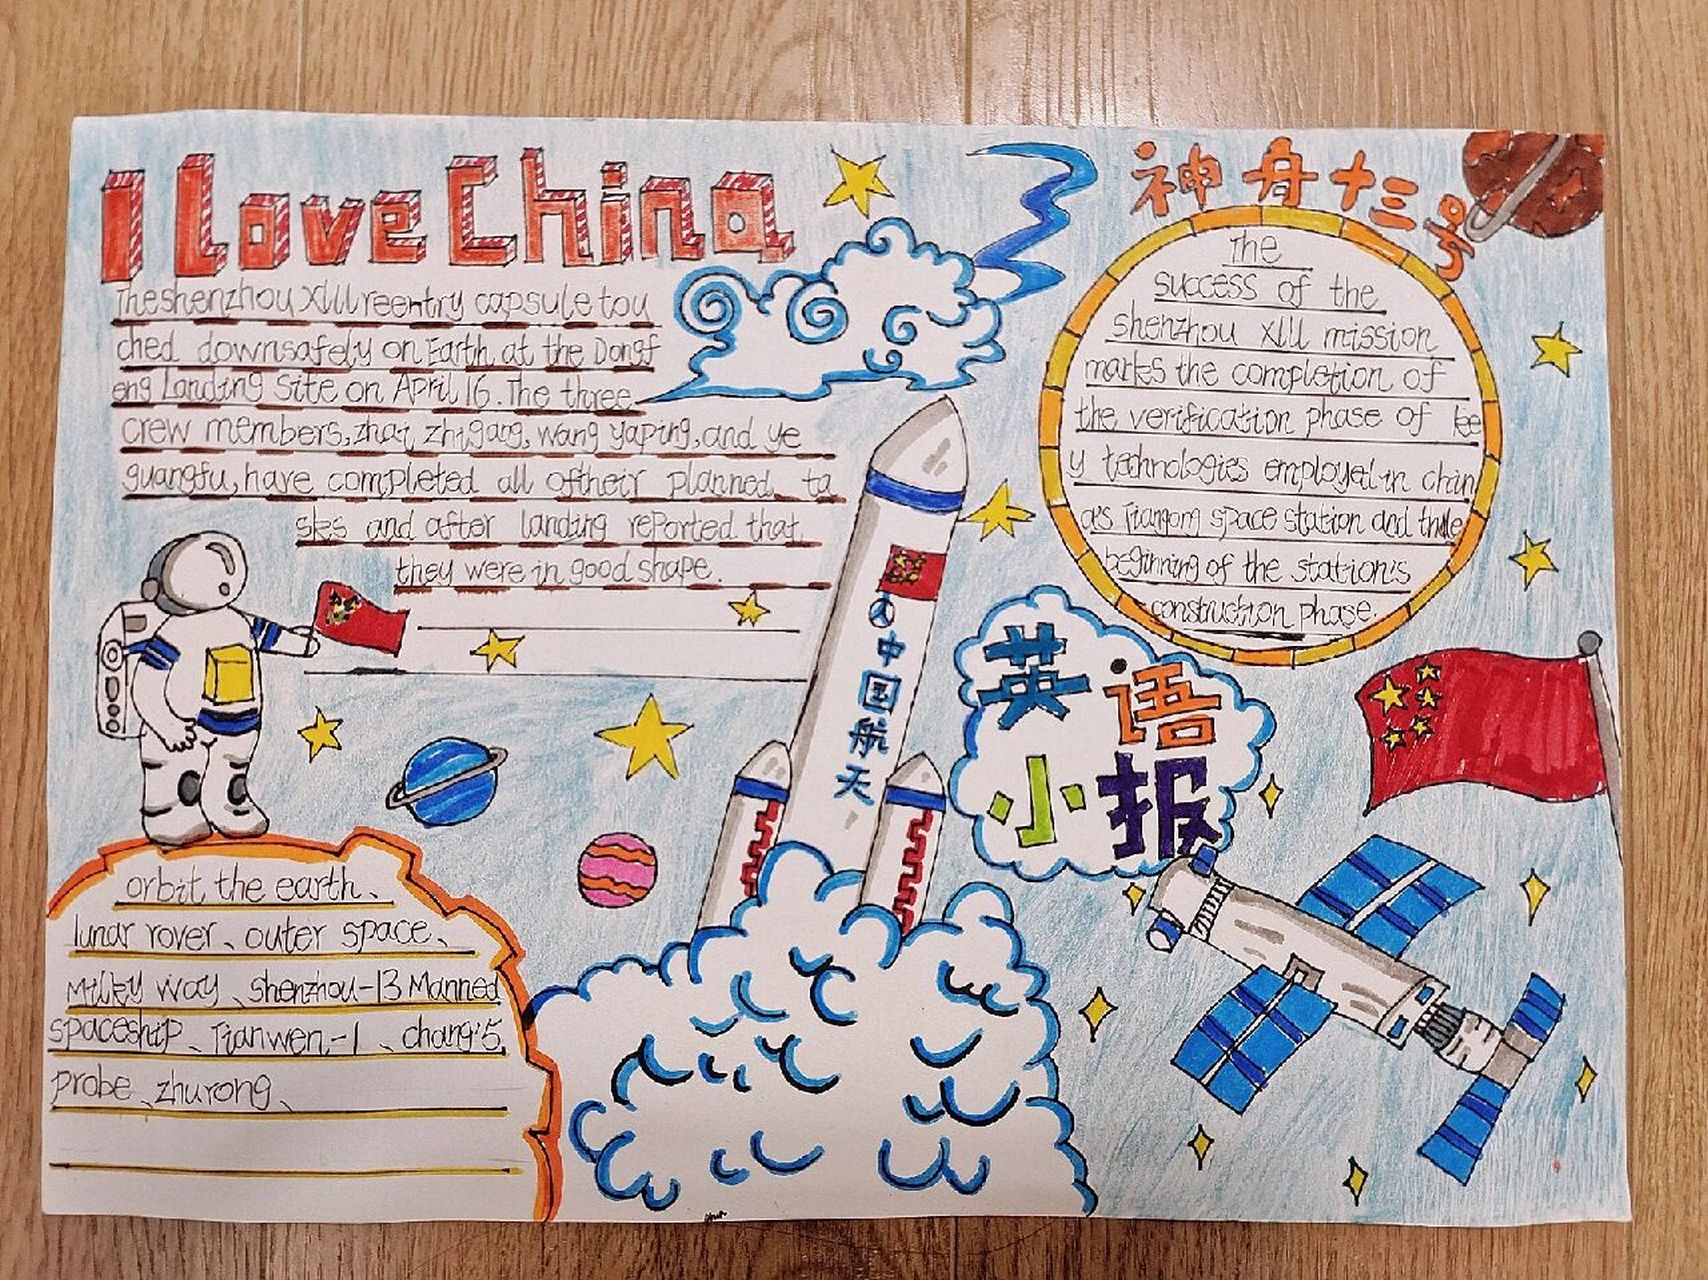 I Love China
The shenzhou XIII reentry capsule tou
ched down safely on Earth at the Dongf
eng Landing Site on April 16. The three
crew members, zhai zhigang, wang yaping, and ye
guangfu, have completed all of their planned ta
sks and after landing reported that
they were in good shape.
神舟十三号
The
success of the
shenzhou XIII mission
marks the completion of
the verification phase of ke
y technologies employed in chin
a's Tiangong space station and the
beginning of the station's
construction phase.
中国航天
英语
小报
orbit the earth、
lunar rover、outer space、
Milky way、shenzhou-13 Manned
spaceship、Tianwen-1、chang'5
probe、zhurong、